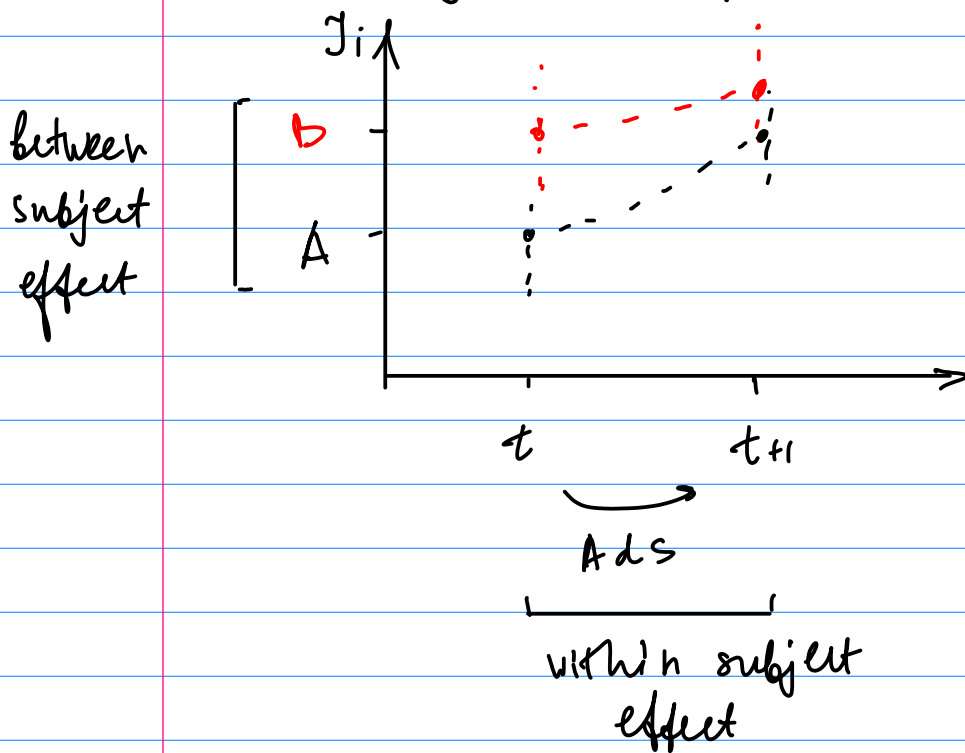 Ji
between
subject
effect
B
A
t
t+1
Ads
within subject
effect